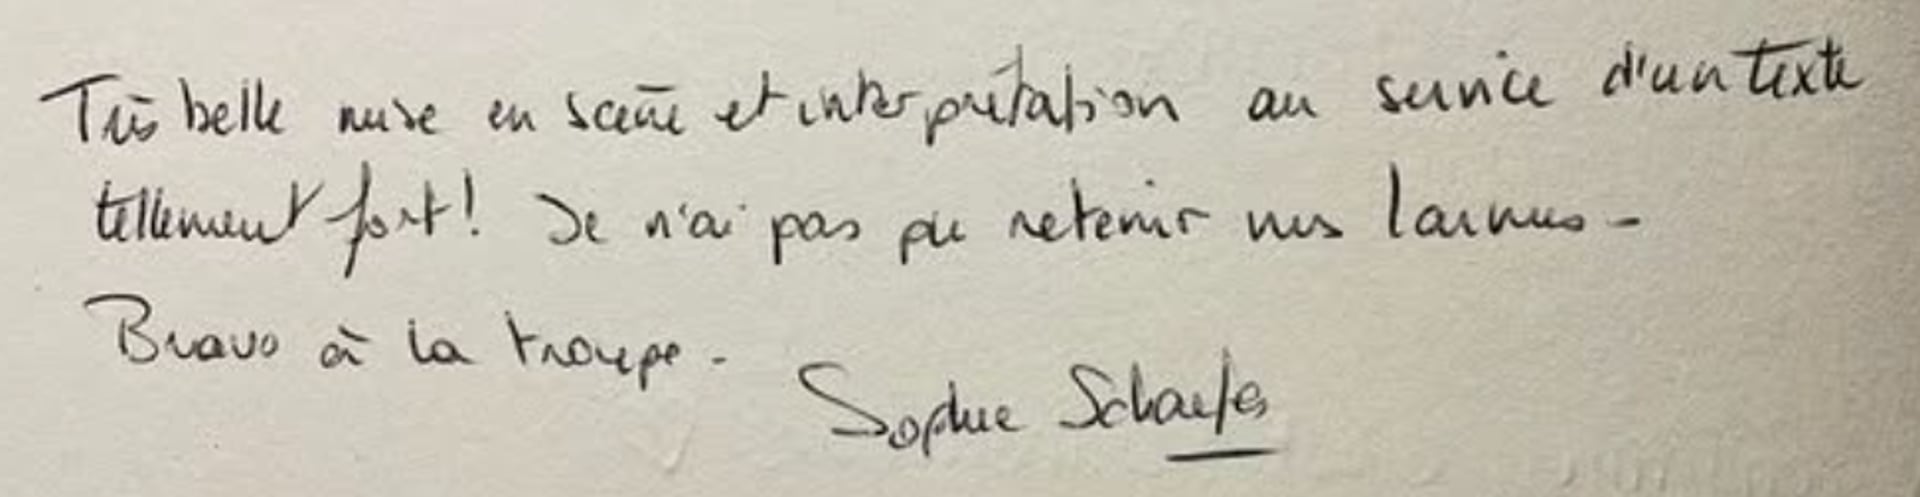 Très belle mise en scène et interprétation au service d'un texte
tellement fort! Je n'ai pas pu retenir mes larmes -
Bravo à la troupe -
Sophie